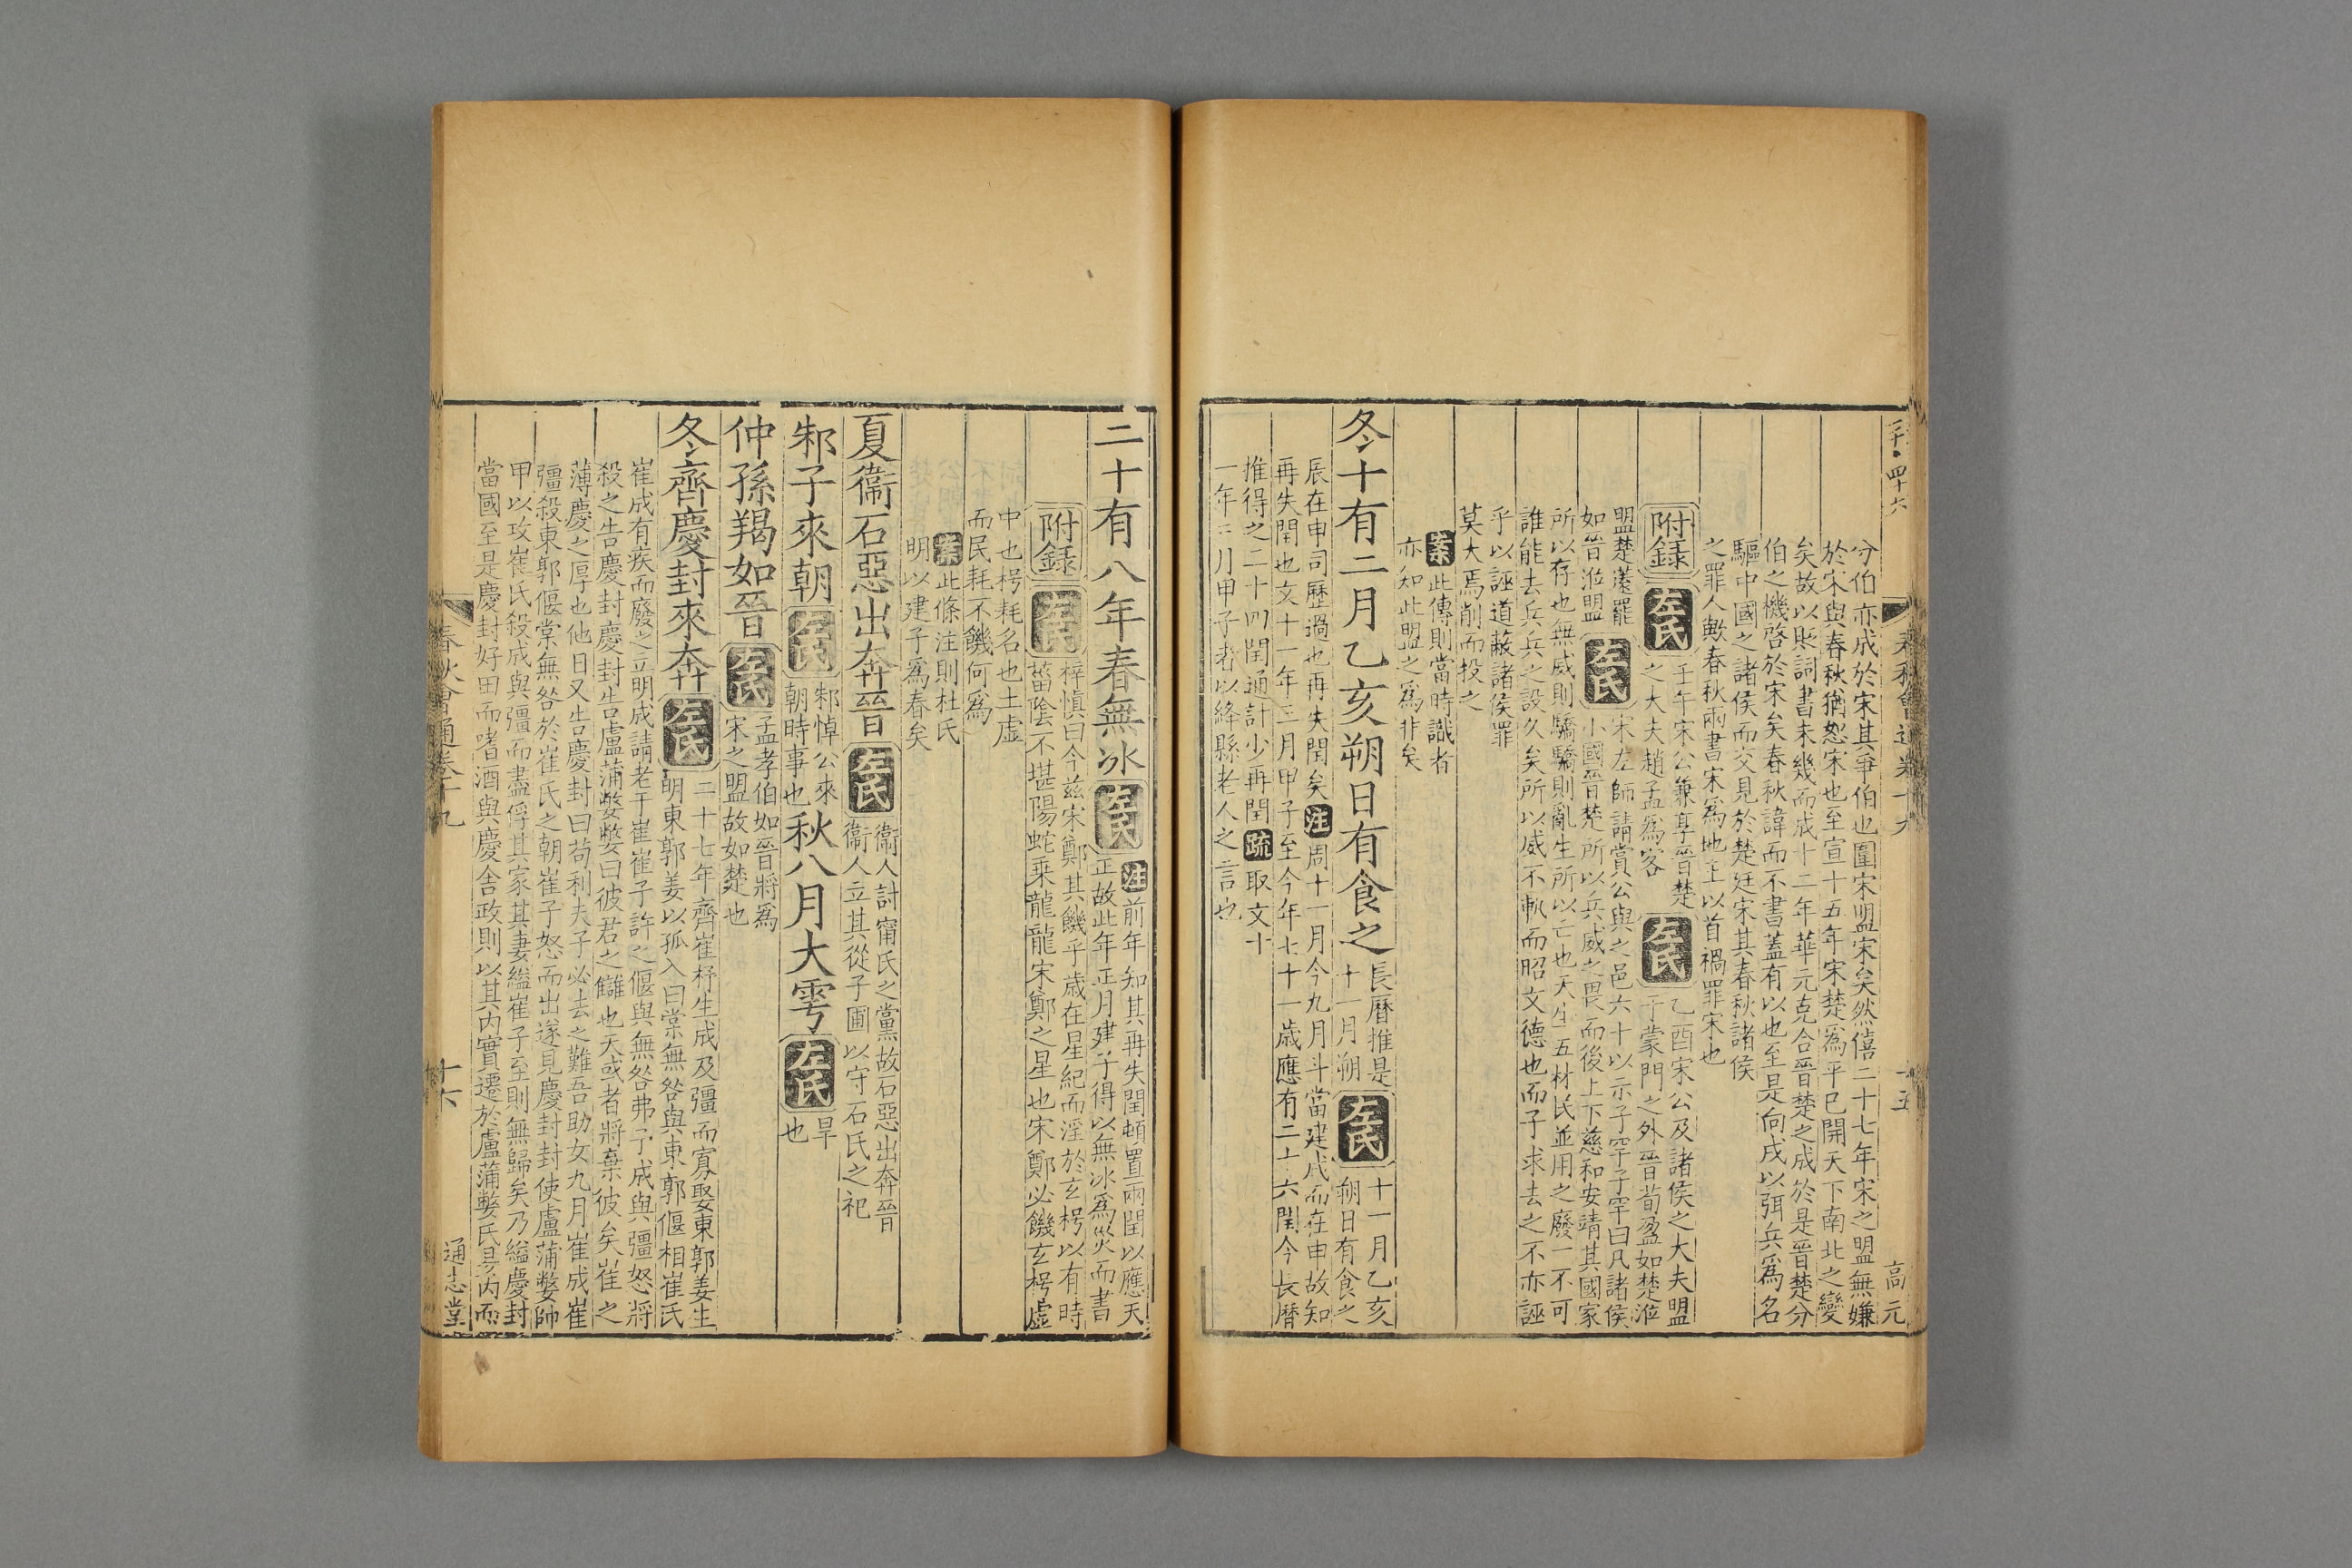 春秋會通卷十九
十五
高元
分伯亦成於宋其爭伯也圍宋盟宋矣然僖二十七年宋之盟無嫌
於宋與春秋猶恕宋也至宣十五年宋楚爲平已開天下南北之變
矣故以貶詞書未幾而成十二年華元克合晉楚之成於是晉楚分
伯之機啓於宋矣春秋諱而不書蓋有以也至是向戌以弭兵爲名
驅中國之諸侯而交見於楚廷宋其春秋諸侯
之罪人歟春秋兩書宋爲地主以首禍罪宋也
附錄左氏壬午宋公兼享晉楚
之大夫趙孟爲客左氏乙酉宋公及諸侯之大夫盟
于蒙門之外晉荀盈如楚涖
盟楚薳罷
如晉涖盟左氏宋左師請賞公與之邑六十以示子罕子罕曰凡諸侯
小國晉楚所以兵威之畏而後上下慈和安靖其國家
所以存也無威則驕驕則亂生所以亡也天生五材民並用之廢一不可
誰能去兵兵之設久矣所以威不軌而昭文德也而子求去之不亦誣
乎以誣道蔽諸侯罪
莫大焉削而投之
案此傳則當時識者
亦知此盟之爲非矣
冬十有二月乙亥朔日有食之長曆推是
十一月朔左氏十一月乙亥
朔日有食之
辰在申司歷過也再失閏矣注周十一月今九月斗當建戌而在申故知
再失閏也文十一年三月甲子至今年七十一歲應有二十六閏今長曆
推得之二十四閏通計少再閏疏取文十
一年三月甲子者以絳縣老人之言也
二十有八年春無冰左氏注前年知其再失閏頓置兩閏以應天
正故此年正月建子得以無冰爲災而書
附錄左氏梓愼曰今茲宋鄭其饑乎歲在星紀而淫於玄枵以有時
菑陰不堪陽蛇乗龍龍宋鄭之星也宋鄭必饑玄枵虛
中也枵耗名也土虛
而民耗不饑何爲
案此條注則杜氏
明以建子爲春矣
夏衞石惡出奔晉左氏衞人討甯氏之黨故石惡出奔晉
衞人立其從子圃以守石氏之祀
邾子來朝左氏邾悼公來
朝時事也秋八月大雩左氏旱
也
仲孫羯如晉左氏孟孝伯如晉將爲
宋之盟故如楚也
冬齊慶封來奔左氏二十七年齊崔杼生成及彊而寡娶東郭姜生
明東郭姜以孤入曰棠無咎與東郭偃相崔氏
崔成有疾而廢之立明成請老于崔崔子許之偃與無咎弗予成與彊怒將
殺之告慶封慶封告盧蒲嫳嫳曰彼君之讎也天或者將棄彼矣崔之
薄慶之厚也他日又告慶封曰苟利夫子必去之難吾助女九月崔成崔
彊殺東郭偃棠無咎於崔氏之朝崔子怒而出遂見慶封封使盧蒲嫳帥
甲以攻崔氏殺成與彊而盡俘其家其妻縊崔子至則無歸矣乃縊慶封
當國至是慶封好田而嗜酒與慶舍政則以其內實遷於盧蒲嫳氏易內而
春秋會通卷十九
十六
通志堂